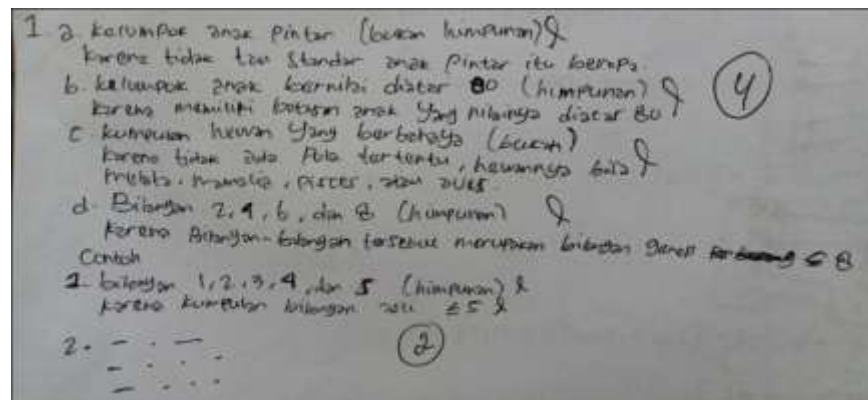 1 a. kelompok anak pintar (bukan himpunan)
karena tidak tau standar anak pintar itu berapa.
b. kelompok anak bernilai diatas 80 (himpunan)
karena memiliki batasan anak yang nilainya diatas 80
4
c kumpulan hewan yang berbahaya (bukan)
karena tidak ada pola tertentu, hewannya bisa
mamalia, pisces, atau aves
d. Bilangan 2, 4, 6, dan 8 (himpunan)
karena Bilangan-bilangan tersebut merupakan bilangan genap ≤ 8
Contoh
1. bilangan 1, 2, 3, 4, dan 5 (himpunan)
karena kumpulan bilangan asli ≤ 5
2.
2